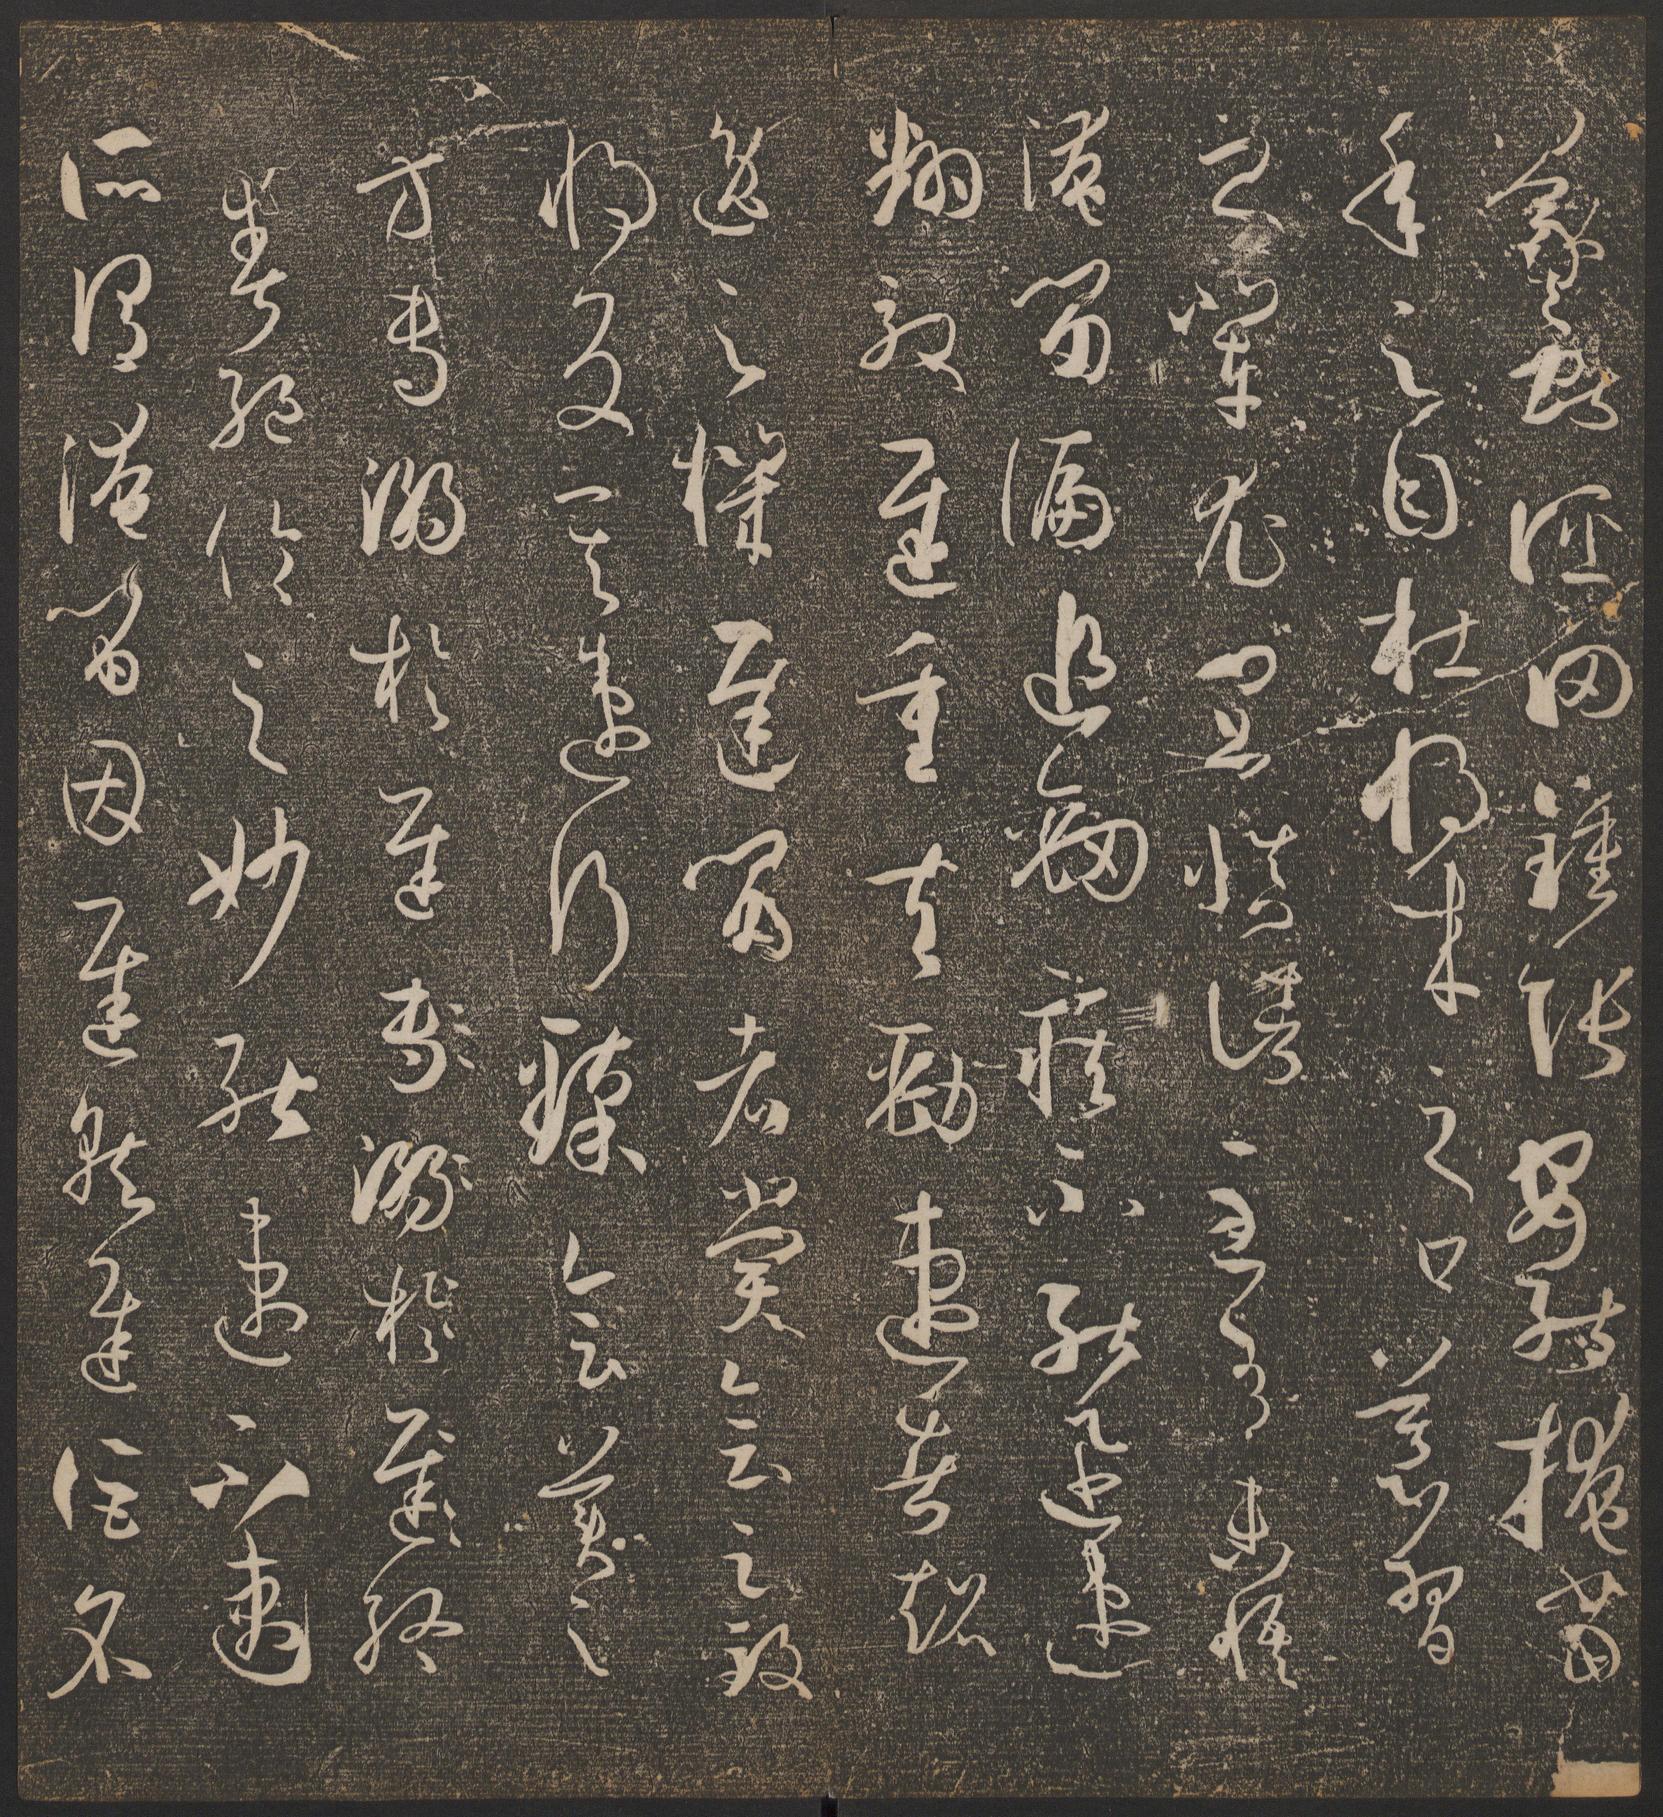 羲獻誣罔鍾張安能掩當
年之目杜將來之口慕習
之輩尤宜慎諸至有未悟
淹留偏追勁疾不能迅速
翻效遲重夫勁速者超
逸之機遲留者賞會之致
將反其速行臻會美之
方專溺於遲專溺於遲終
爽絕倫之妙能速不速
所謂淹留因遲就遲詎名